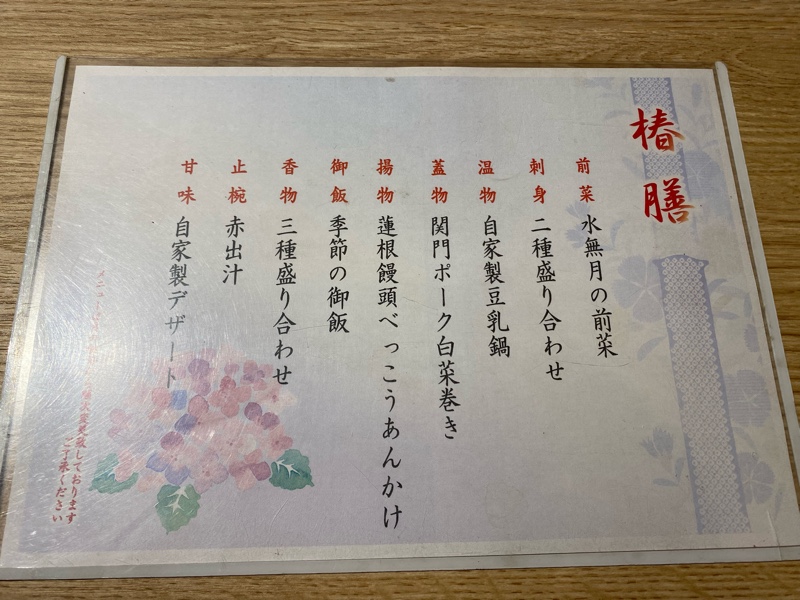 椿膳
前菜 水無月の前菜
刺身 二種盛り合わせ
温物 自家製豆乳鍋
蓋物 関門ポーク白菜巻き
揚物 蓮根饅頭べっこうあんかけ
御飯 季節の御飯
香物 三種盛り合わせ
止椀 赤出汁
甘味 自家製デザート
メニュー
変更致しております
ご了承ください